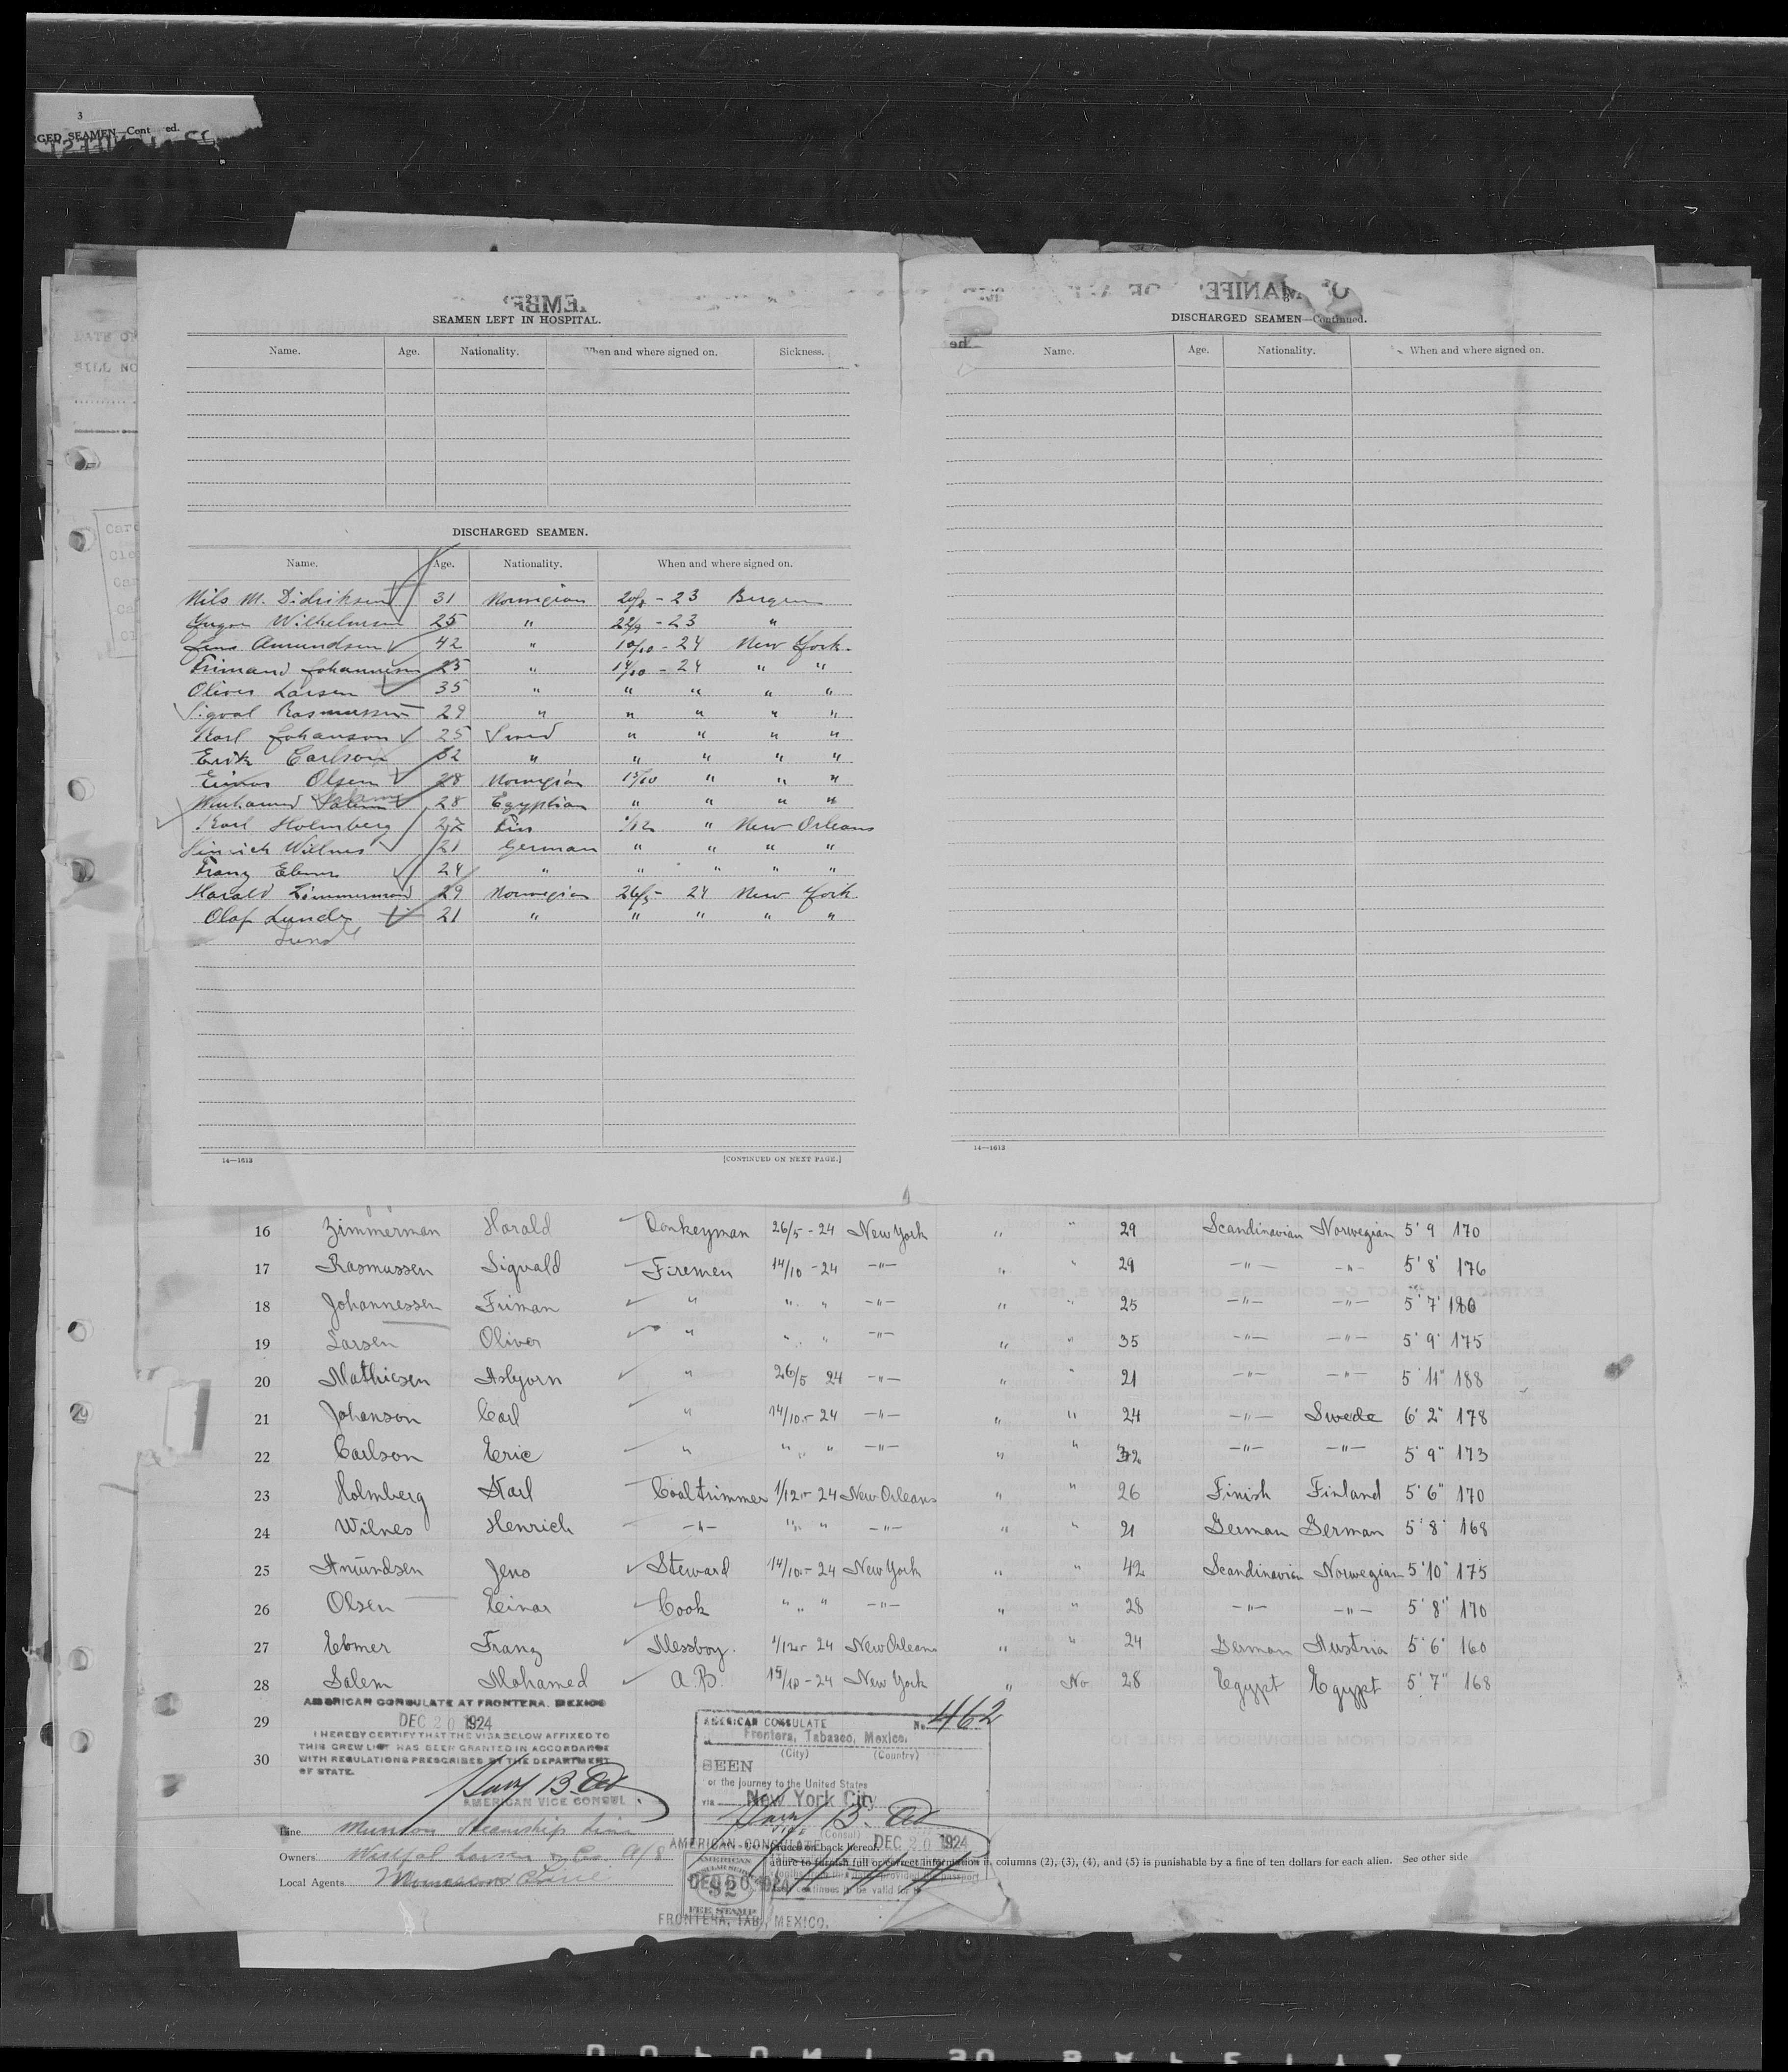 3
GED SEAMEN—Cont ed.
SEAMEN LEFT IN HOSPITAL.
Name. Age. Nationality. When and where signed on. Sickness.
DISCHARGED SEAMEN.
Name. Age. Nationality. When and where signed on.
Nils M. Didriksen 31 Norwegian 20/8 - 23 Bergen
Wilhelmsen 25 " - 23 "
Jens Amundsen 42 " 10/10 - 24 New York
Frimand Johannesen 25 " 14/10 - 24 " "
Oliver Larsen 35 " " " " "
Sigval Rasmussen 29 " " " " "
Karl Johanson 25 Swed " " " "
Erik Carlson 32 " " " " "
Einar Olsen 28 Norwegian 15/10 " " "
Muhamed Salem 28 Egyptian " " " "
Karl Holmberg Fin 1/12 " New Orleans
Hinrich Willnes 21 German " " " "
Franz Ebmer 24 " " " " "
Harald Zimmermand 29 Norwegian 26/5 - 24 New York
Olaf Lunde 21 " " " " "
Lunde
14—1613 [CONTINUED ON NEXT PAGE.]
DISCHARGED SEAMEN—Continued.
Name. Age. Nationality. When and where signed on.
14—1613
16 Zimmerman Harald Donkeyman 26/5 - 24 New York " " 29 Scandinavian Norwegian 5' 9 170
17 Rasmussen Sigvald Firemen 14/10 - 24 —"— " " 29 —"— —"— 5' 8" 176
18 Johannessen Friman " " " —"— " " 25 —"— —"— 5' 7"
19 Larsen Oliver " " " —"— " " 35 —"— —"— 5' 9" 175
20 Mathiesen Asbjorn " 26/5 24 —"— " " 21 —"— —"— 5' 11" 188
21 Johanson Carl " 14/10 - 24 —"— " " 24 —"— Swede 6' 2" 178
22 Carlson Eric " " " —"— " " 32 —"— —"— 5' 9" 173
23 Holmberg Karl Coaltrimmer 1/12 - 24 New Orleans " " 26 Finish Finland 5' 6" 170
24 Wilnes Henrich —"— " " —"— " " 21 German German 5' 8" 168
25 Amundsen Jens Steward 14/10 - 24 New York " " 42 Scandinavian Norwegian 5' 10" 175
26 Olsen Einar Cook " " " —"— " " 28 —"— —"— 5' 8" 170
27 Ebmer Franz Messboy. 1/12 - 24 New Orleans " " 24 German Austria 5' 6" 160
28 Salem Mohamed A.B. 15/10 - 24 New York " No 28 Egypt Egypt 5' 7" 168
29
30
AMERICAN CONSULATE AT FRONTERA, MEXICO
DEC 20 1924
I HEREBY CERTIFY THAT THE VISA BELOW AFFIXED TO
THIS CREW LIST HAS BEEN GRANTED IN ACCORDANCE
WITH REGULATIONS PRESCRIBED BY THE DEPARTMENT
OF STATE.
AMERICAN VICE CONSUL
AMERICAN CONSULATE No. 462
Frontera, Tabasco, Mexico.
(City) (Country)
SEEN
or the journey to the United States
via New York City
(Consul)
AMERICAN CONSULATE DEC 20 1924
Line Munson Steamship Line
Owners Westfal Larsen & Co. A/S
Local Agents Munson Line
on back hereof.
adure to furnish full or correct information in columns (2), (3), (4), and (5) is punishable by a fine of ten dollars for each alien. See other side
AMERICAN
$2
DEC 20 1924
FEE STAMP
FRONTERA, TAB., MEXICO.